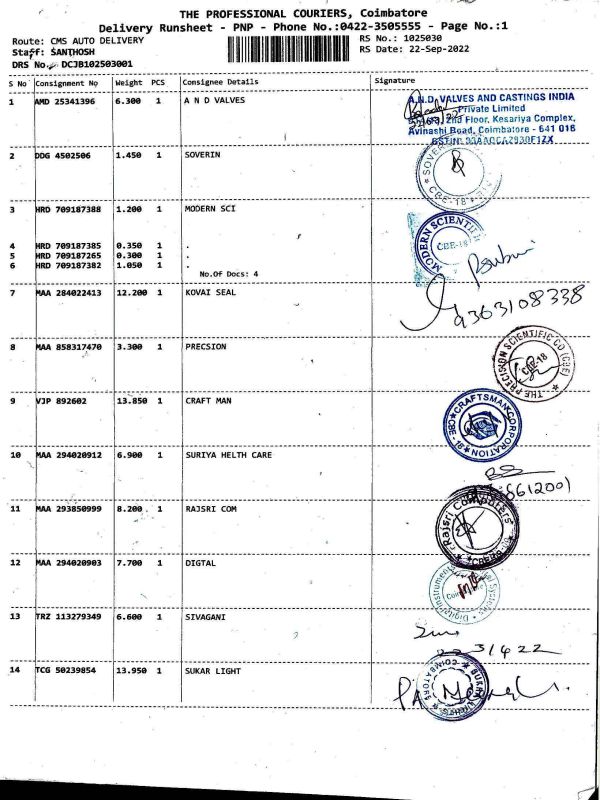 THE PROFESSIONAL COURIERS, Coimbatore
Delivery Runsheet - PNP - Phone No.:0422-3505555 - Page No.:1
Route: CMS AUTO DELIVERY RS No.: 1025030
Staff: SANTHOSH RS Date: 22-Sep-2022
DRS No. DCJB102503001
S No Consignment No Weight PCS Consignee Details Signature
1 AMD 25341396 6.300 1 A N D VALVES
A.N.D. VALVES AND CASTINGS INDIA
Private Limited
2nd Floor, Kesariya Complex,
Avinashi Road, Coimbatore - 641 018
2 DDG 4502506 1.450 1 SOVERIN
SOVER
CBE-18
3 HRD 709187388 1.200 1 MODERN SCI
MODERN SCIENTIFIC
CBE-18
4 HRD 709187385 0.350 1 .
5 HRD 709187265 0.300 1 .
6 HRD 709187382 1.050 1 .
No.Of Docs: 4
7 MAA 284022413 12.200 1 KOVAI SEAL
9363108338
8 MAA 858317470 3.300 1 PRECSION
THE PRECISION SCIENTIFIC CO (CBE)
CBE-18
9 VJP 892602 13.850 1 CRAFT MAN
CRAFTSMAN CORPORATION
CBE - 18
10 MAA 294020912 6.900 1 SURIYA HELTH CARE
6612001
11 MAA 293850999 8.200 1 RAJSRI COM
Rajsri Computers
12 MAA 294020903 7.700 1 DIGTAL
13 TRZ 113279349 6.600 1 SIVAGANI
14 TCG 50239854 13.950 1 SUKAR LIGHT
COIMBATORE